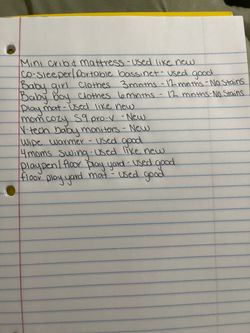 Mini crib & mattress - used like new
co-sleeper/portable bassinet - used good
Baby girl clothes 3mnths - 12 mnths - No Stains
Baby Boy clothes 6 mnths - 12 mnths - No Stains
Play mat - used like new
momcozy S9 pro-v - New
V-tech baby monitors - New
Wipe warmer - used good
4moms swing - used like new
playpen/floor play yard - used good
floor play yard mat - used good